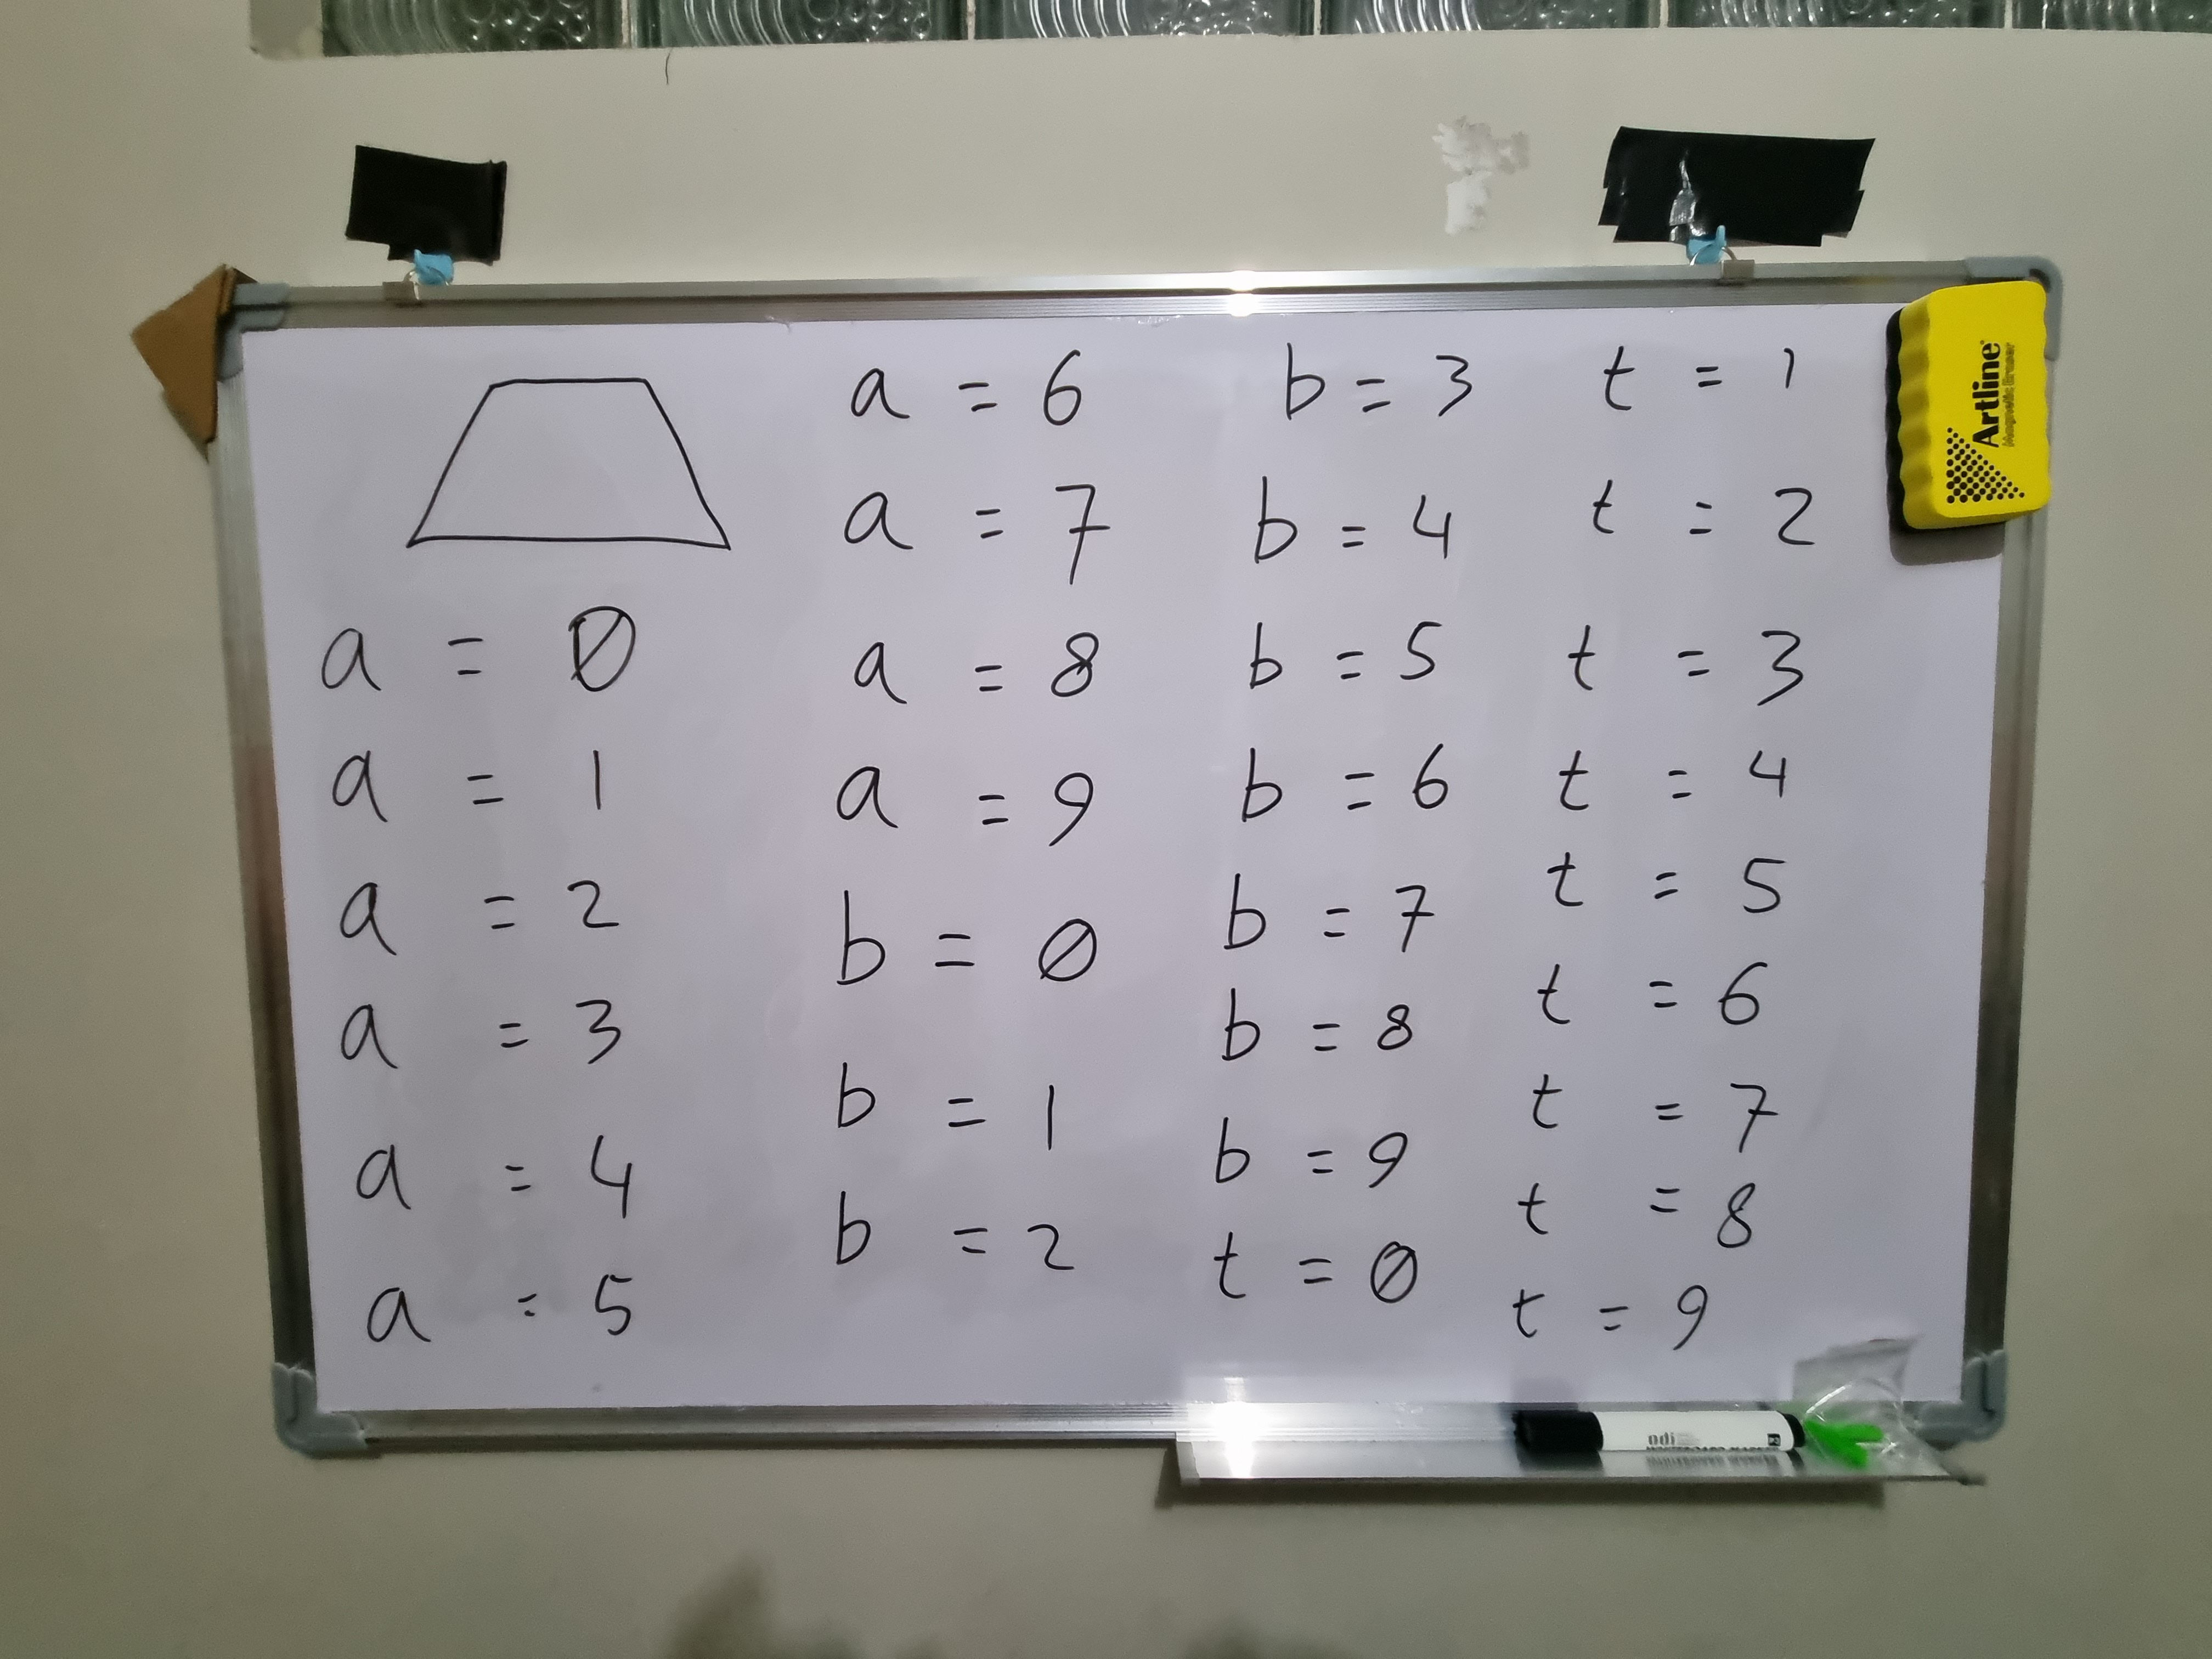 a = 0
a = 1
a = 2
a = 3
a = 4
a = 5
a = 6
a = 7
a = 8
a = 9
b = 0
b = 1
b = 2
b = 3
b = 4
b = 5
b = 6
b = 7
b = 8
b = 9
t = 0
t = 1
t = 2
t = 3
t = 4
t = 5
t = 6
t = 7
t = 8
t = 9
Artline
Magnetic Eraser